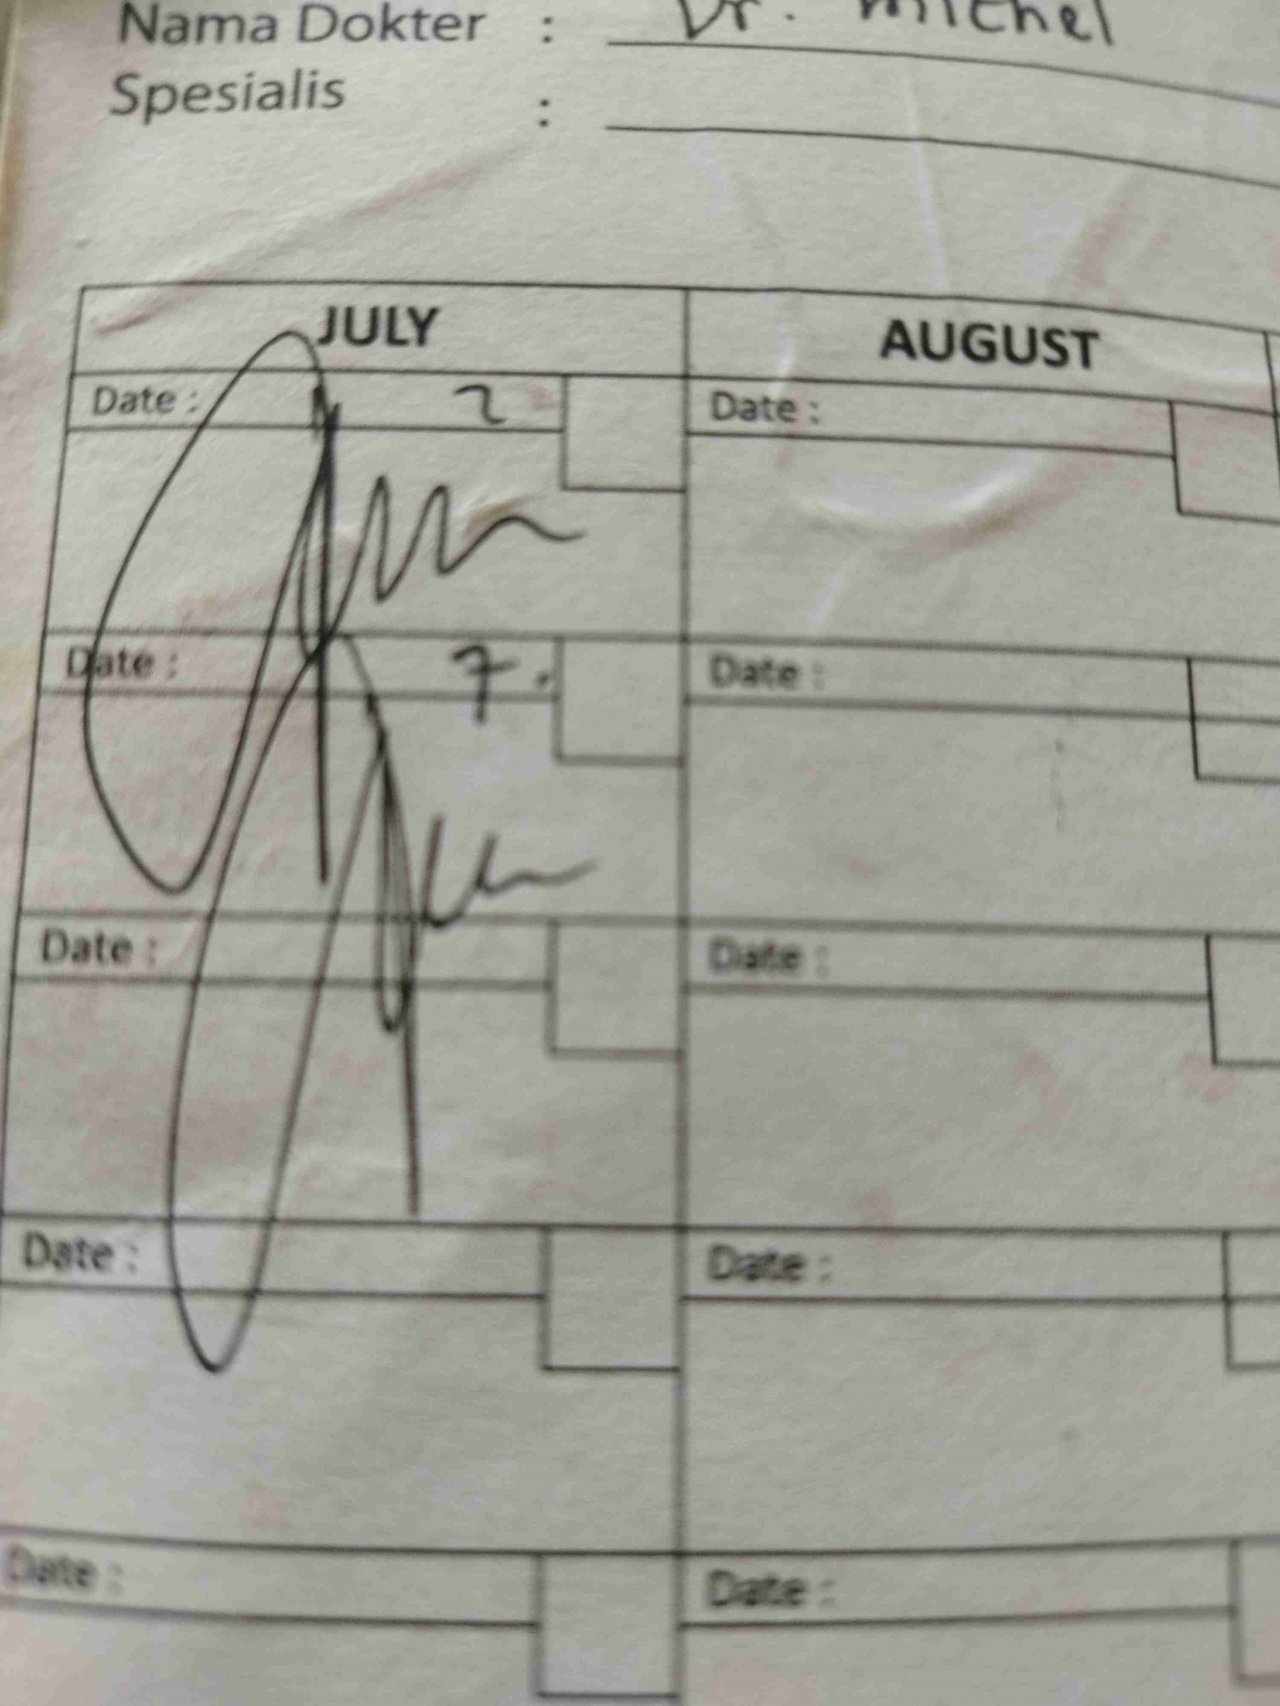 Nama Dokter : Dr. Michel
Spesialis :
JULY AUGUST
Date : 2 Date :
Date : 7. Date :
Date : Date :
Date : Date :
Date : Date :